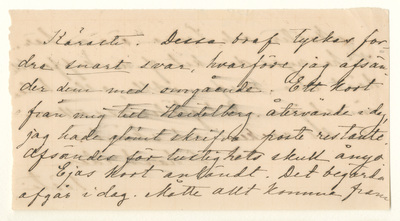 Käraste. Dessa bref tyckas for-
dra snart svar, hvarföre jag afsän-
der dem med omgående. Ett kort
från mig till Heidelberg återvände i dag,
jag hade glömt skrifva poste restante.
Afsändes för lustighets skull ånyo.
Ejas kort anländt. Det begärda
afgår i dag. Måtte allt komma fram